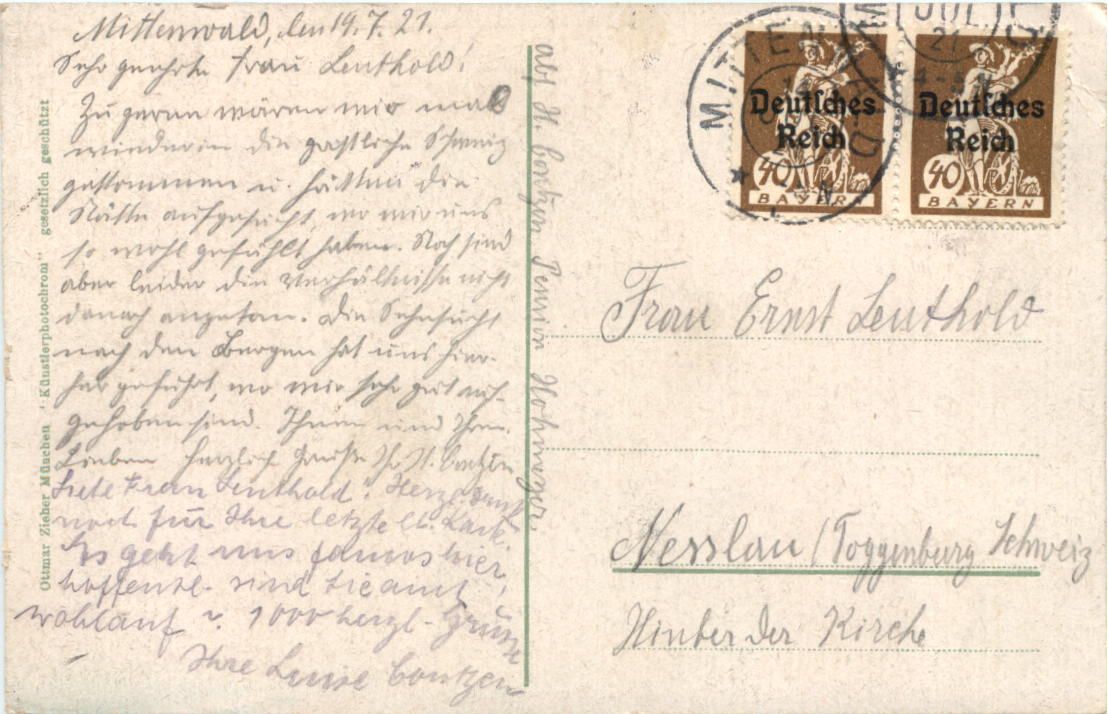 Mittenwald, den 19.7.21.
Sehr geehrte Frau Leuthold!
Zu gerne wären wir mal
wieder in die gastliche Schweiz
gekommen u. hätten die
Stätte aufgesucht, wo wir uns
so wohl gefühlt haben. Noch sind
aber leider die Verhältnisse nicht
danach angetan. Die Sehnsucht
nach den Bergen hat uns hier-
her geführt, wo wir sehr gut auf-
gehoben sind. Ihnen und Ihren
Lieben herzlich Grüße Ihr H. Contzen
Liebe Frau Leuthold! Herzl. Dank
noch für Ihre letzte lb. Karte.
Es geht uns famos hier,
hoffentl. sind Sie amtl.
wohlauf u. 1000 herzl. Grüsse
Ihre Luise Contzen
abs. H. Contzen Pension Hohweger
Ottmar Zieher München "Künstlerphotochrom" gesetzlich geschützt
MITTENWALD
JUL
21
Deutsches
Reich
40
BAYERN
Deutsches
Reich
40
BAYERN
Frau Ernst Leuthold
Nesslau / Toggenburg Schweiz
Hinter der Kirche